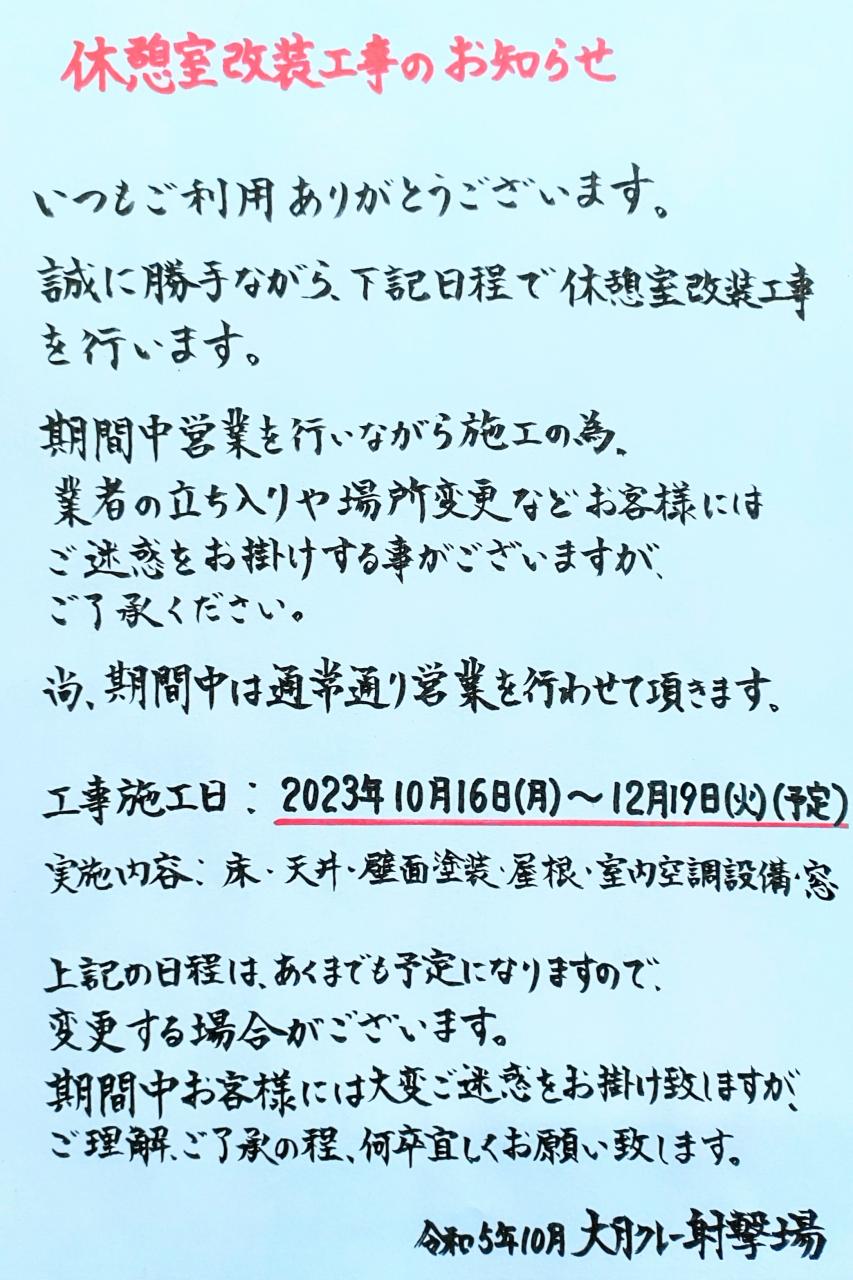 休憩室改装工事のお知らせ
いつもご利用ありがとうございます。
誠に勝手ながら、下記日程で休憩室改装工事
を行います。
期間中営業を行いながら施工の為、
業者の立ち入りや場所変更などお客様には
ご迷惑をお掛けする事がございますが、
ご了承ください。
尚、期間中は通常通り営業を行わせて頂きます。
工事施工日：2023年10月16日(月)〜12月19日(火)(予定)
実施内容：床・天井・壁面塗装・屋根・室内空調設備・窓
上記の日程は、あくまでも予定になりますので、
変更する場合がございます。
期間中お客様には大変ご迷惑をお掛け致しますが、
ご理解、ご了承の程、何卒宜しくお願い致します。
令和5年10月 大月クレー射撃場